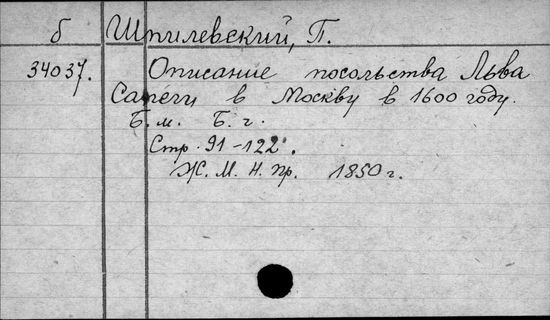 б Шпилевский, П.
34037. Описание посольства Льва
Сапеги в Москву в 1600 году.
Б. м. Б. г.
Стр. 91-122.
Ж. М. Н. пр. 1850 г.